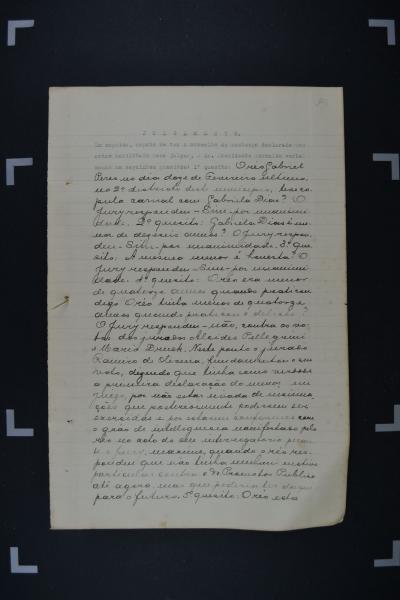 JULGAMENTO.
Em seguida, depois de ter o conselho de sentença declarado que
estava habilitado para julgar, o dr.
os seguintes quesitos: 1º quesito: O réo Gabriel
Peres no dia doze de Fevereiro ultimo,
no 2º districto deste municipio, teve co-
pula carnal com Gabriela Dias? O
Jury respondeu - Sim - por unanimi-
dade. 2º quesito: Gabriela Dias é me-
nor de dezeseis annos? O Jury respon-
deu - Sim - por unanimidade. 3º que-
sito: A mesma menor é honesta? O
Jury respondeu - Sim - por unanimi-
dade. 4º quesito: O réo era menor
de quatorze annos quando praticou
digo O réo tinha menos de quatorze
annos quando praticou o delicto?
O Jury respondeu - não, contra os vo-
tos dos jurados Alcides Pellegrini
e Mario Druck. Neste ponto o jurado
Ramiro de Oliveira, fundamentou o seu
voto, dizendo que tinha como
a primeira declaração do menor, em
juizo, por não estar eivada de insinua-
ções que posteriormente poderiam ser
exercidas e por estarem conformes com
o gráo de intelligencia manifestado pelo
réo no acto do seu interrogatorio
maxime, quando o réo res-
pondeu que não tinha nenhum motivo
particular contra o dr. Promotor Publico
até agora, mas que poderia ter daqui
para o futuro. 5º quesito: O réo esta